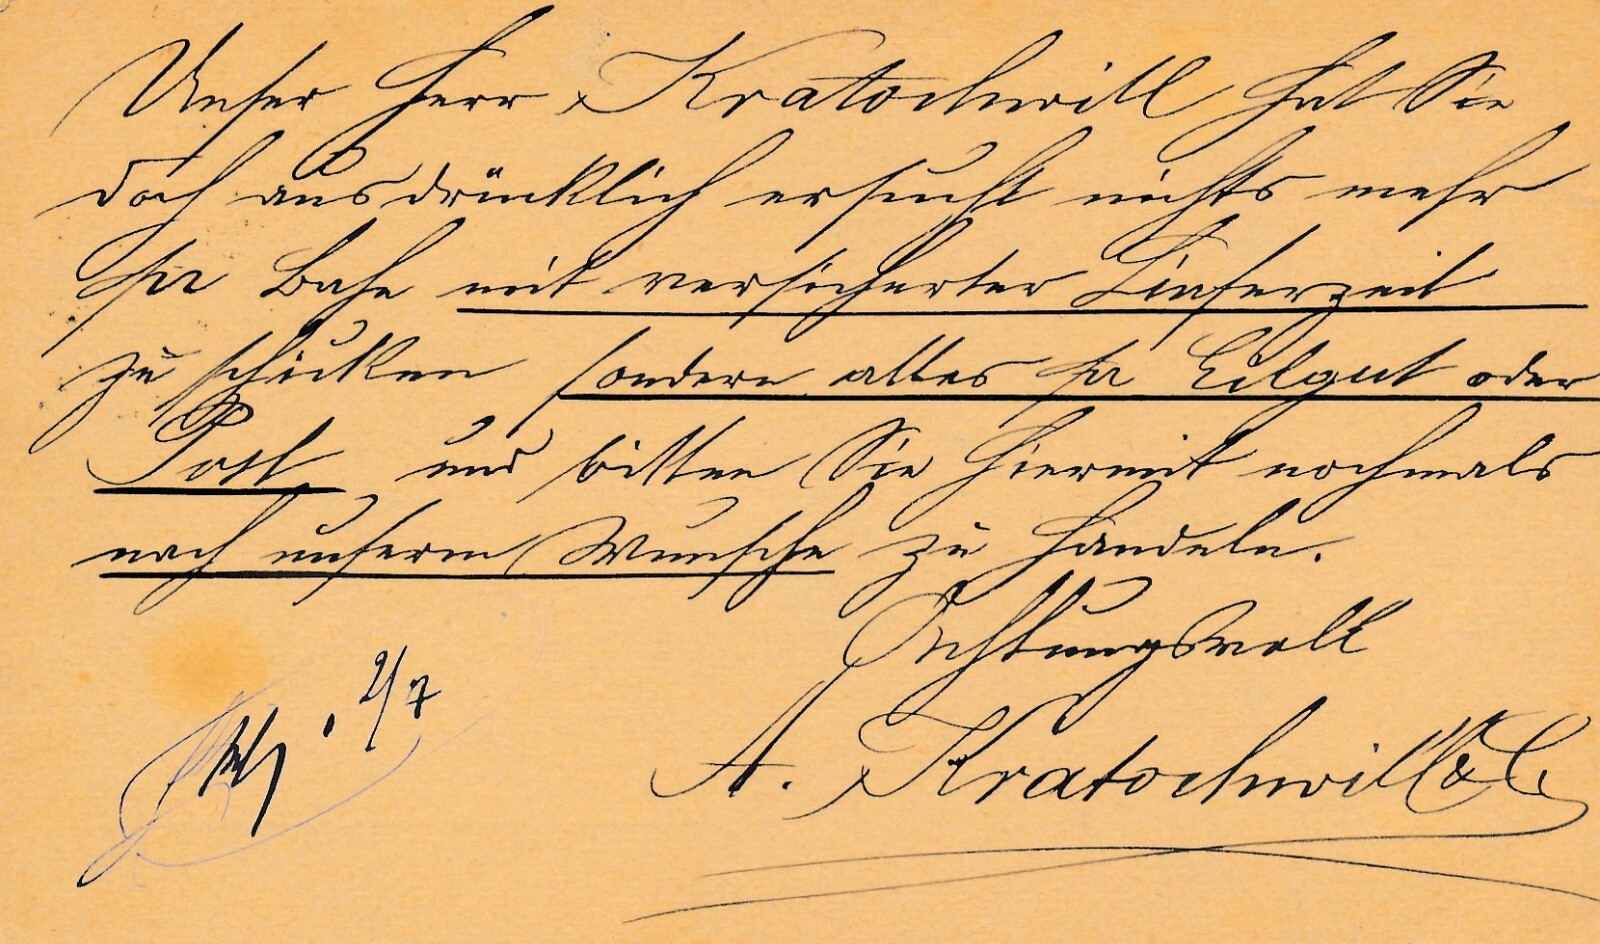 Unser Herr Kratochwill hat Sie
doch ausdrücklich ersucht nichts mehr
pr Bahn mit versicherter Lieferzeit
zu schicken sondern alles pr Eilgut oder
Post und bitten Sie hiermit nochmals
nach unserm Wunsche zu handeln.
Achtungsvoll
2/7
A. Kratochwill & C.